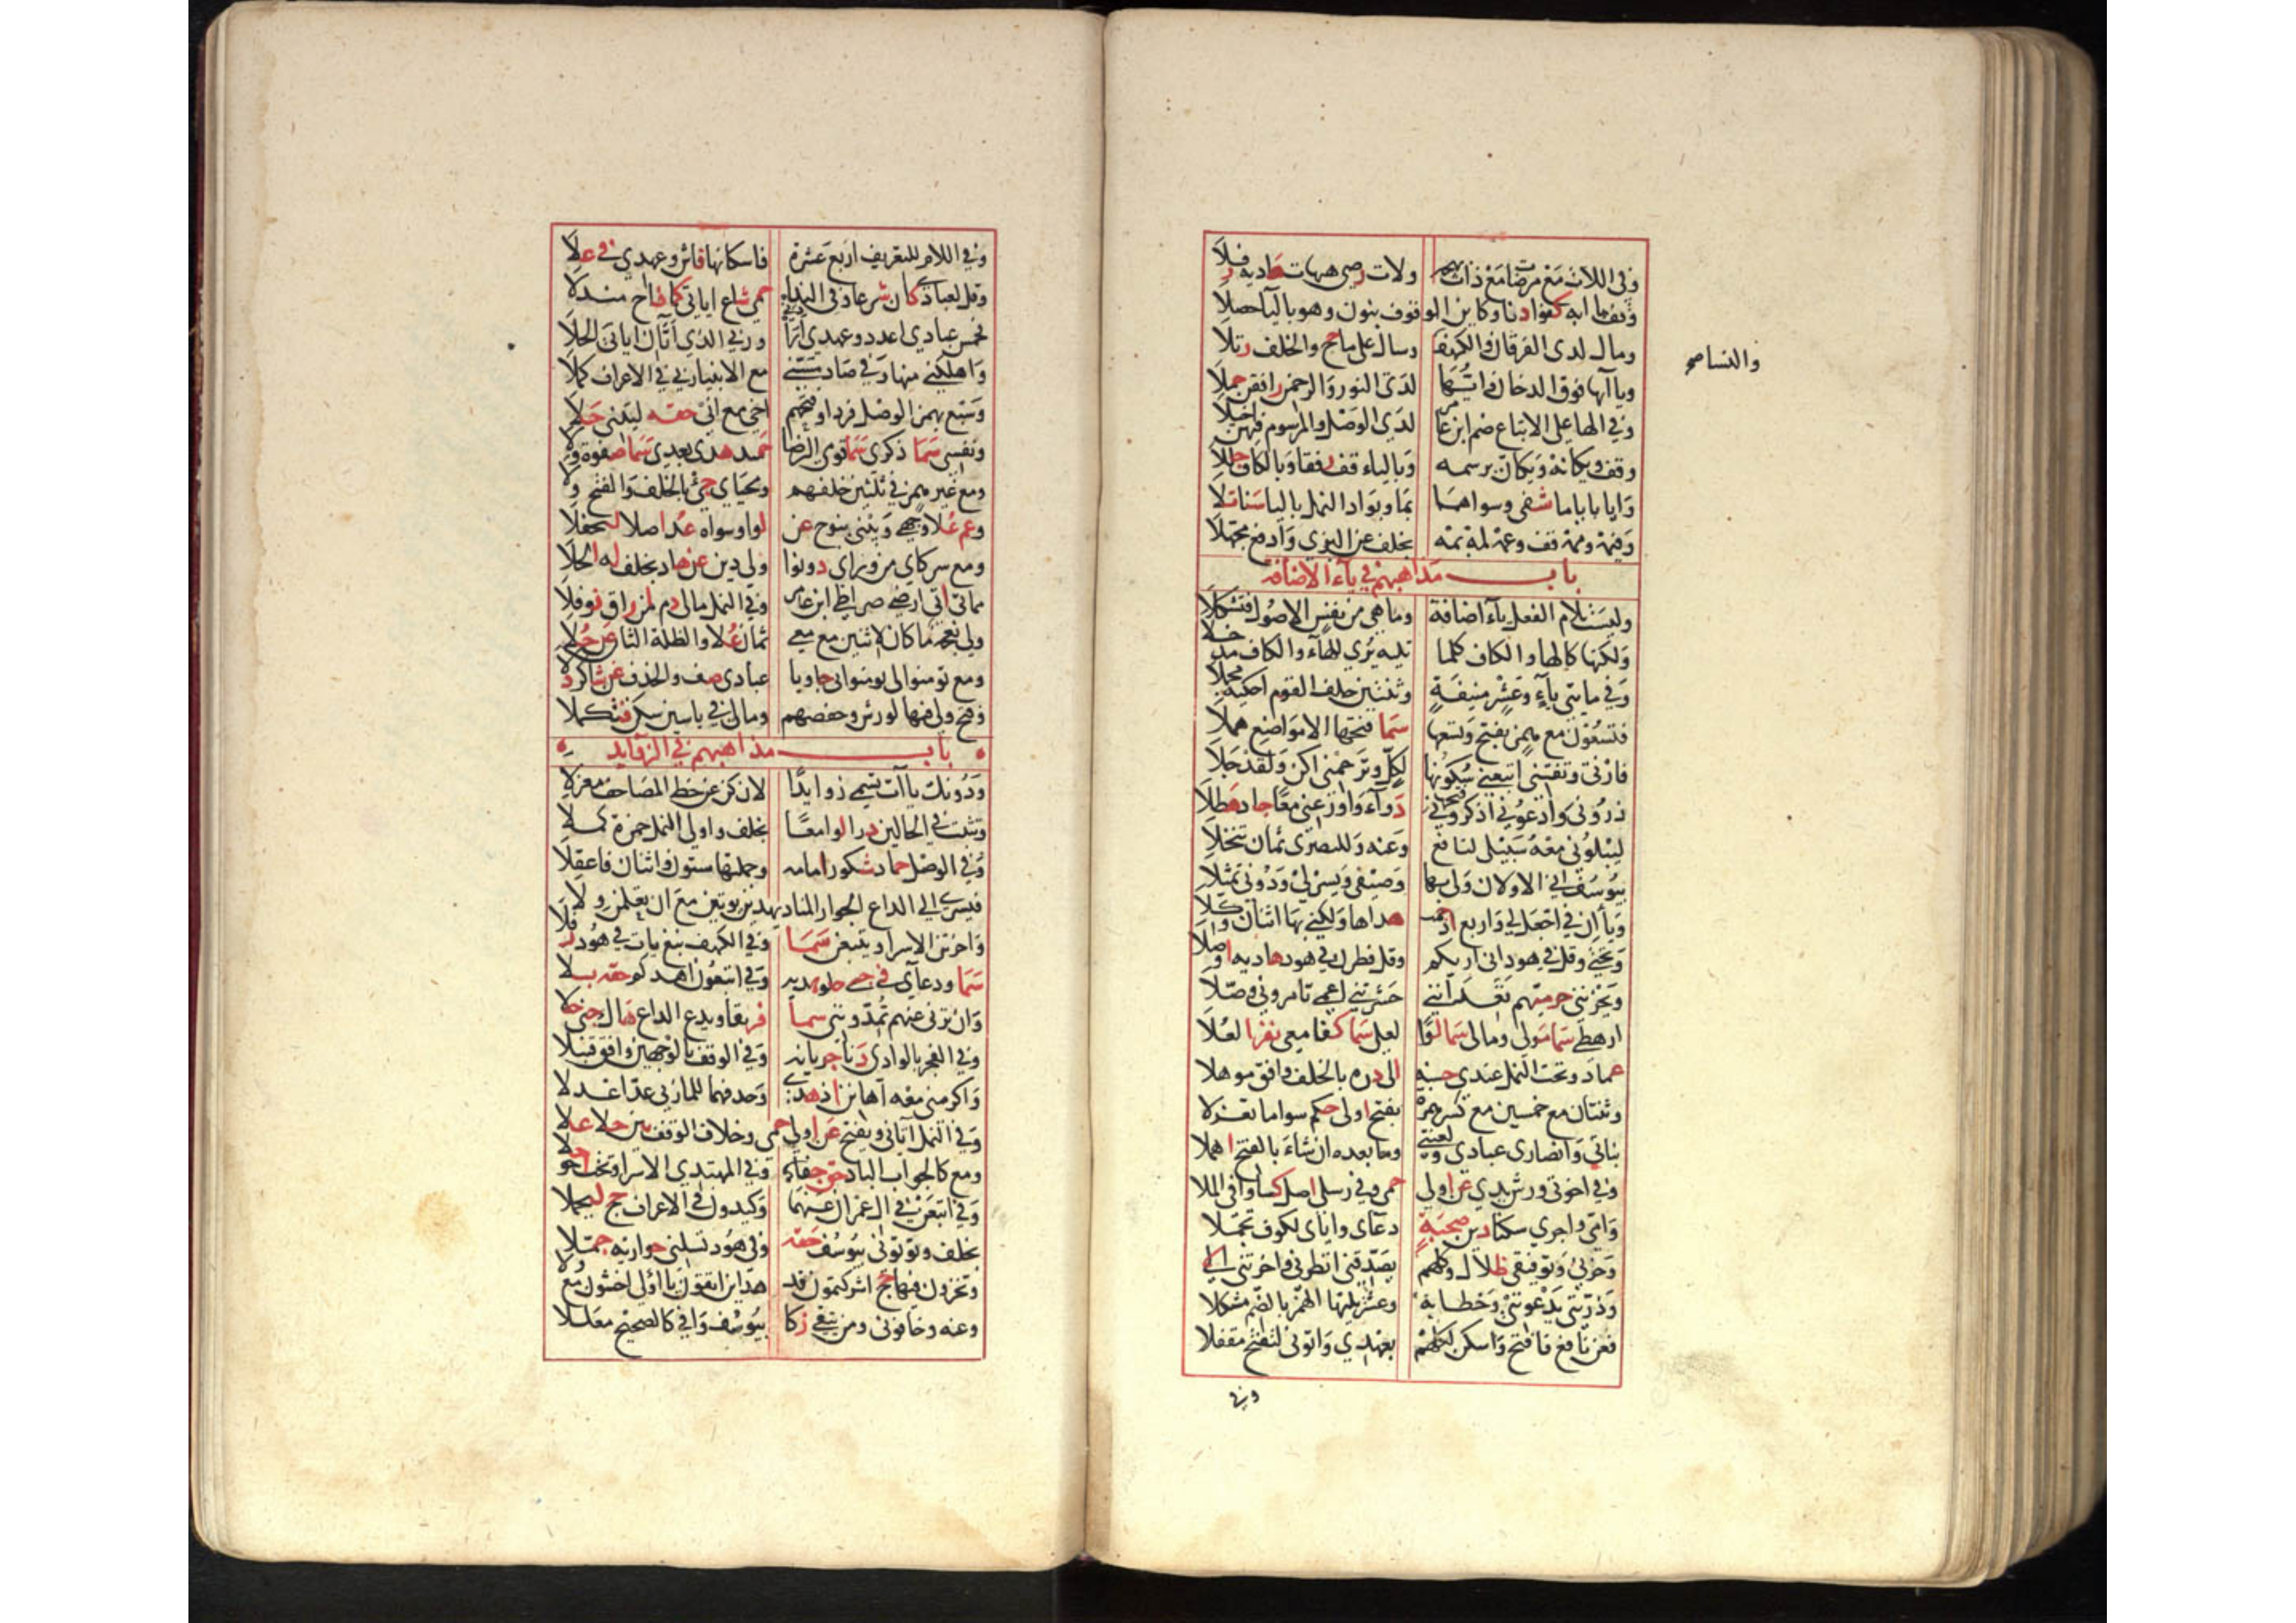 وفي اللات مع مرضات مع ذات بهجة ولات رضى هيهات هاديه رفلا
وقف يا ابه كفوا دنا وكاين الوقوف بنون وهو باليا حصلا
ومال لدى الفرقان والكهف وسال على ما حج والخلف رتلا
والنسا صح
ويا ايها فوق الدخان وايها لدى النور والرحمن رافقن حملا
وفي الها على الاتباع ضم ابن عامر لدى الوصل والمرسوم فيهن اخيلا
وقف ويكانه ويكان برسمه وبالياء قف رفقا وبالكاف حللا
وايا بايا ما شفى وسواهما بما وبوادا النمل باليا سنا تلا
وفيمه وممه قف وعمه لمه بمه بخلف عن البزي وادفع مجهلا
باب مذاهبهم في ياء الاضافة
وليست بلام الفعل ياء اضافة وما هي من نفس الاصول فتشكلا
ولكنها كالها والكاف كلما تليه يرى للهاء والكاف مدخلا
وفي مايتي ياء وعشر منيفة وثنتين خلف القوم احكيه مجملا
فتسعون مع همز بفتح وتسعها سما فتحها الا مواضع هملا
فارني وتفتني اتبعني سكونها لكل وترحمني اكن ولقد جلا
ذروني وادعوني اذكروني فتحها دواء واوزعني معا جاد هطلا
ليبلوني معه سبيلي لنافع وعنه وللبصري ثمان تنخلا
بيوسف اني الاولان ولي بها وضيفي ويسر لي ودوني تمثلا
ويا ان في اجعل لي واربع اذ حمت هداها ولكني بها اثنان وكلا
وتحتي وقل في هود اني اريكم وقل فطرن في هود هاديه اوصلا
ويحزنني حرميهم تعدانني حشرتني اعمى تامروني وصلا
ارهطي سما مولى ومالي سما لوا لعلي سما كفوا معي نفر العلا
عماد وتحت النمل عندي حسنه الى دره بالخلف وافق موهلا
وثنتان مع خمسين مع كسر همزة بفتح اولى حكم سوا ما تعزلا
بناتي وانصاري عبادي ولعنتي وما بعده ان شاء بالفتح اهملا
وفي اخوتي ورش يدي عن اولي حمى وفي رسلي اصل كسا وافي الملا
وامي واجري سكنا دين صحبة دعاي واباي لكوف تجملا
وحزني وتوفيقي ظلال وكلهم يصدقني انظرني واخرتني الى
وذريتي يدعونني وخطابه وعشر يليها الهمز بالضم مشكلا
فعن نافع فافتح واسكن لكلهم بعهدي واتوني لتفتح مقفلا
وفي
وفي اللام للتعريف اربع عشرة فاسكانها فاش وعهدي في علا
وقل لعبادي كان شرعا وفي الندا حمى شاع اياتي كما فاح منزلا
فخمس عبادي اعدد وعهدي ارادني وربي الذي اتان اياتي الحلا
واهلكني منها وفي صاد مسني مع الانبيا ربي في الاعراف كملا
وسبع بهمز الوصل فردا وفتحهم اخي مع اني حقه ليتني حلا
ونفسي سما ذكري سما قومي الرضا حميد هدى بعدي سما صفوه ولا
ومع غير همز في ثلثين خلفهم ومحياي جئ بالخلف والفتح خولا
وعم علا وجهي وبيتي بنوح عن لوا وسواه عد اصلا ليحفلا
ومع شركاي من وراي دونوا ولي دين عن هاد بخلف له الحلا
مماتي اتى ارضي صراطي ابن عامر وفي النمل مالي دم لمن راق نوفلا
ولي نعجة ما كان لي اثنين مع معي ثمان علا والظلة الثان عن جلا
ومع تومنوا لي يومنوا بي جا ويا عبادي صف والحذف عن شاكر دلا
وفتح ولي فيها لورش وحفصهم ومالي في ياسين سكن فتكملا
باب مذاهبهم في الزوايد
ودونك ياآت تسمى زوايدا لان كن عن خط المصاحف معزلا
وتثبت في الحالين درا لوامعا بخلف واولى النمل حمزة كملا
وفي الوصل حماد شكور امامه وجملتها ستون واثنان فاعقلا
فيسري الى الداع الجوار المناد يهدين يوتين مع ان يعلمن ولا
واخرتن الاسرا وتتبعن سما وفي الكهف نبغ يات في هود رفلا
سما ودعاي في جنى حلو هديه وفي اتبعون اهدكم حقه بلا
وان ترني عنهم تمدونني سما فريقا ويدع الداع هاك جنى حلا
وفي الفجر بالوادي دنا جريانه وفي الوقف بالوجهين وافق قنبلا
واكرمني معه اهانن اذ هدى وحذفهما للمازني عد اعدلا
وفي النمل اتاني ويفتح عن اولي حمى وخلاف الوقف بين حلا علا
ومع كالجواب الباد حق جناهما وفي المهتدي الاسرا وتحت اخو حلا
وفي اتبعن في ال عمران عنهما وكيدون في الاعراف حج ليحملا
بخلف وتوتوني بيوسف حقه وفي هود تسلني حواريه جملا
وتخزون فيها حج اشركتمون قد هدان اتقون يا اولي اخشون مع ولا
وعنه وخافوني ومن يتقي زكا بيوسف وافى كالصحيح معللا